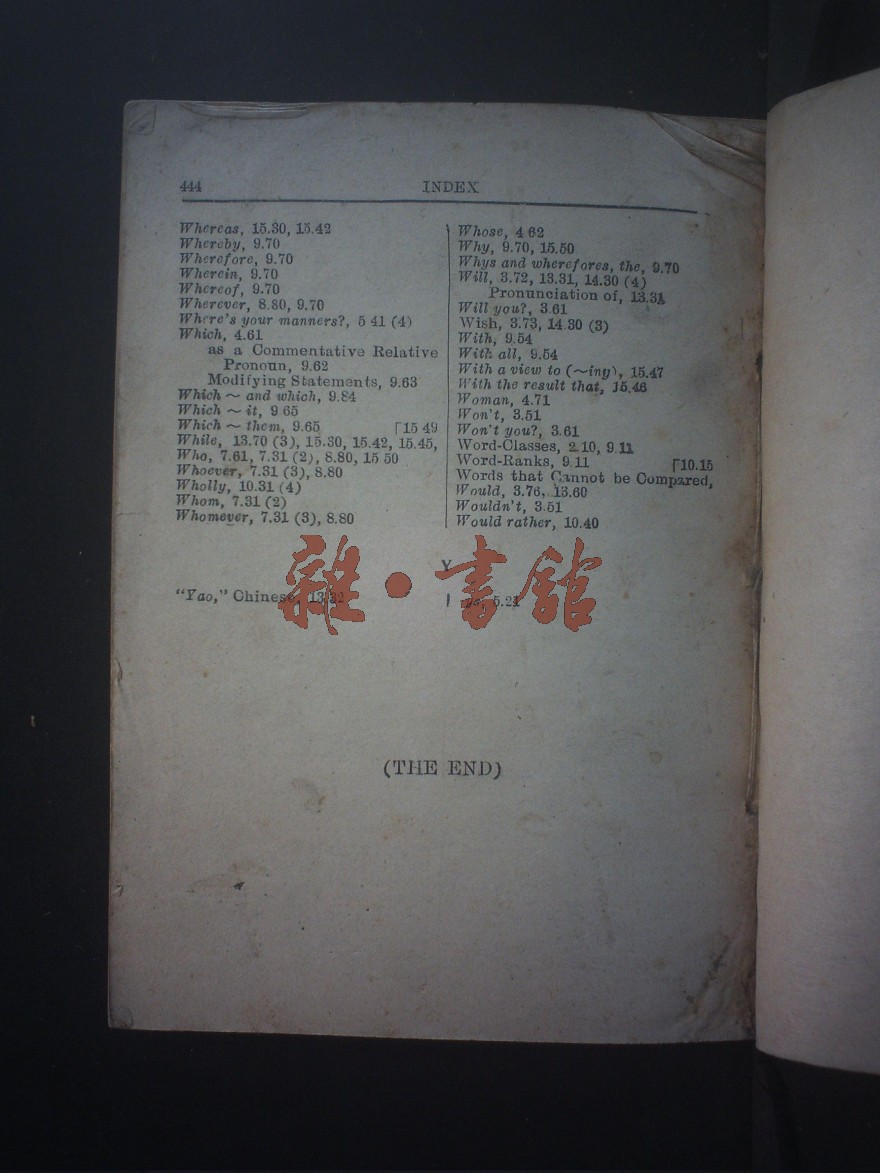 444
INDEX
Whereas, 15.30, 15.42
Whereby, 9.70
Wherefore, 9.70
Wherein, 9.70
Whereof, 9.70
Wherever, 8.80, 9.70
Where's your manners?, 5 41 (4)
Which, 4.61
as a Commentative Relative
Pronoun, 9.62
Modifying Statements, 9.63
Which ~ and which, 9.84
Which ~ it, 9 65
Which ~ them, 9.65 ⌈15 49
While, 13.70 (3), 15.30, 15.42, 15.45,
Who, 7.61, 7.31 (2), 8.80, 15 50
Whoever, 7.31 (3), 8.80
Wholly, 10.31 (4)
Whom, 7.31 (2)
Whomever, 7.31 (3), 8.80
Whose, 4 62
Why, 9.70, 15.50
Whys and wherefores, the, 9.70
Will, 3.72, 13.31, 14.30 (4)
Pronunciation of, 13.31
Will you?, 3.61
Wish, 3.73, 14 30 (3)
With, 9.54
With all, 9.54
With a view to (~ing), 15.47
With the result that, 15.46
Woman, 4.71
Won't, 3.51
Won't you?, 3.61
Word-Classes, 2.10, 9.11
Word-Ranks, 9.11 ⌈10.15
Words that Cannot be Compared,
Would, 3.76, 13.60
Wouldn't, 3.51
Would rather, 10.40
Y
"Yao," Chinese,
5.21
雜·書館
(THE END)